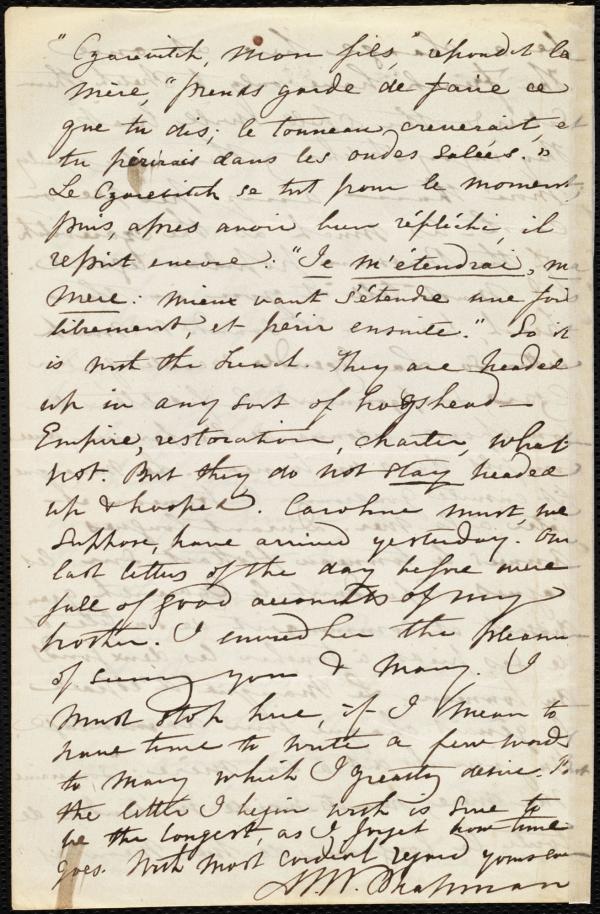 "Czarevitch, mon fils," répondit la
mère, "prends garde de faire ce
que tu dis; le tonneau creverait, et
tu périrais dans les ondes salées."
Le Czarevitch se tut pour le moment,
puis, apres avoir bien réfléchi, il
reprit encore: "Je m'étendrai, ma
mere: mieux vaut s'étendre une fois
librement, et périr ensuite." So it
is with the French. They are headed
up in any sort of hogshead—
Empire, restoration, charter, what
not. But they do not stay headed
up & hooped. Caroline must, we
suppose, have arrived yesterday. Our
last letters of the day before were
full of good accounts of my
brother. I envied her the pleasure
of seeing you & Mary. I
must stop here, if I mean to
have time to write a few words
to Mary which I greatly desire.
the letter I begin with is sure to
be the longest, as I forget how time
goes. With most cordial regard yours ever
M.W. Chapman